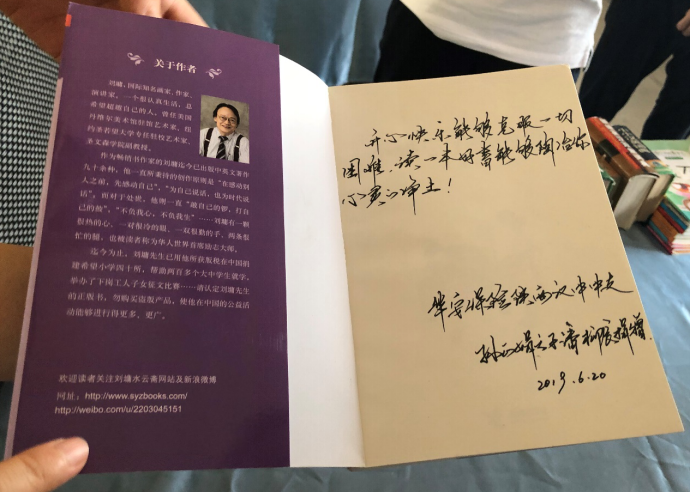 关于作者
刘墉，国际知名画家、作家、
演讲家。一个很认真生活，总
希望超越自己的人。曾任美国
丹维尔美术馆驻馆艺术家、纽
约圣若望大学专任驻校艺术家、
圣文森学院副教授。
作为畅销书作家的刘墉迄今已出版中英文著作
九十余种，他一直所秉持的创作原则是“在感动别
人之前，先感动自己”，“为自己说话，也为时代说
话”。而对于处世，他则一直“敲自己的锣，打自
己的鼓”，“不负我心，不负我生”……刘墉有一颗
很热的心、一对很冷的眼、一双很勤的手、两条很
忙的腿，也被读者称为华人世界首席励志大师。
迄今为止，刘墉先生已用他所获版税在中国捐
建希望小学四十所，帮助两百多个大中学生就学，
举办了下岗工人子女征文比赛……请认定刘墉先生
的正版书，勿购买盗版产品，使他在中国的公益活
动能够进行得更多、更广。
欢迎读者关注刘墉水云斋网站及新浪微博
网址：http://www.syzbooks.com/
http://weibo.com/u/2203045151
开心快乐能够克服一切
困难。读一本好书能够陶冶你
心灵的净土！
华安保险陕西汉中中支
捐赠
2019.6.20